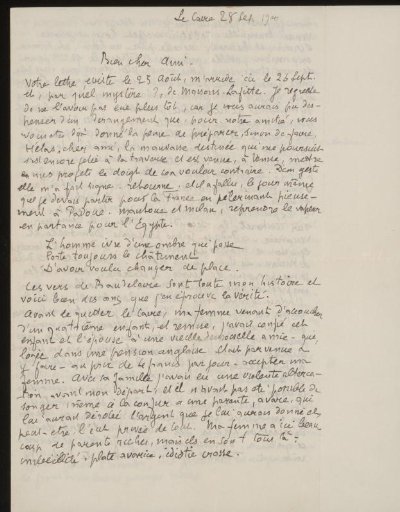 Le Caire 28 Sep. 19
Bien cher Ami.
Votre lettre écrite le 25 Août, m'arrive ici le 26 Sept.
et, par quel mystère ?, de Maisons-Lafitte. Je regrette
de ne l'avoir pas eue plus tôt, car je vous aurais pu dis-
penser d'un dérangement que, pour votre amitié, vous
vous êtes donné la peine de préparer, sinon de faire.
Hélas, cher ami, la mauvaise destinée qui me poursuit
s'est encore jetée à la traverse et est venue, à Venise, mettre
à mes projets le doigt de son vouloir contraire. D'un geste
elle m'a fait signe : retourne. et il a fallu, le jour même
que je devais partir pour la France en pèlerinant pieuse-
ment à Padoue, Mantoue et Milan, reprendre le vapeur
en partance pour l'Egypte.
L'homme ivre d'une ombre qui passe
Porte toujours le châtiment
D'avoir voulu changer de place.
Ces vers de Baudelaire sont toute mon histoire et
voici bien des ans que j'en éprouve la vérité.
Avant de quitter le Caire, ma femme venant d'accoucher
d'un quatrième enfant, et remise, j'avais confié cet
enfant et l'épouse à une vieille demoiselle amie - que,
logée dans une pension anglaise était parvenue à
faire - au prix de francs par jour - accepter ma
femme. Avec sa famille j'avais eu une violente alterca-
tion, avant mon départ, et il n'avait pas été possible de
songer même à la confier à une parente, avare, qui
lui aurait dérobé l'argent que je lui aurais donné et,
peut-être, l'eût privée de tout. Ma femme a ici beau-
coup de parents riches, mais ils en sont tous là :
imbécilité, plate avarice, idiotie crasse.